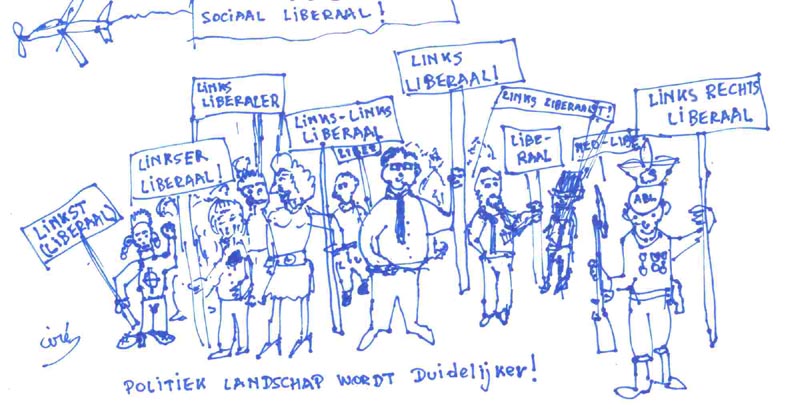 SOCIAAL LIBERAAL!
LINKS
LIBERAAL!
LINKS
LIBERALER
LINKS RECHTS
LIBERAAL
LINKS LIBERAALST!
LINKS-LINKS
LIBERAAL
LIBER
LIBE-
RAAL
NEO-LIBE
LINKSER
LIBERAAL!
LINKST
(LIBERAAL)
ABL
POLITIEK LANDSCHAP WORDT Duidelijker!